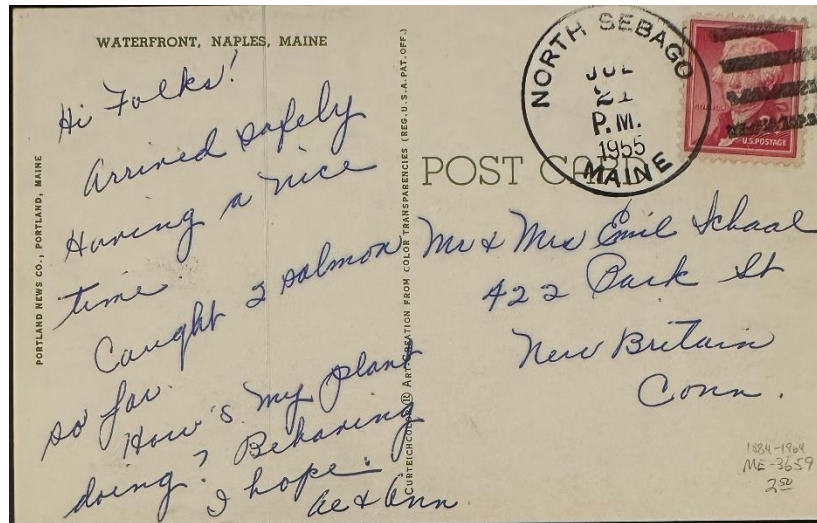 WATERFRONT, NAPLES, MAINE
Hi Folks!
Arrived safely
Having a nice
time.
Caught 2 salmon
so far.
How's my plant
doing? Behaving
I hope.
Al & Ann
PORTLAND NEWS CO., PORTLAND, MAINE
CURTEICHCOLOR® ART-CREATION FROM COLOR TRANSPARENCIES (REG. U.S.A. PAT. OFF.)
POST CARD
NORTH SEBAGO
JUL
21
P.M.
1955
MAINE
U.S. POSTAGE
Mr & Mrs Emil Schaal
422 Park St
New Britain
Conn.
1884-1964
ME-3659
2.50